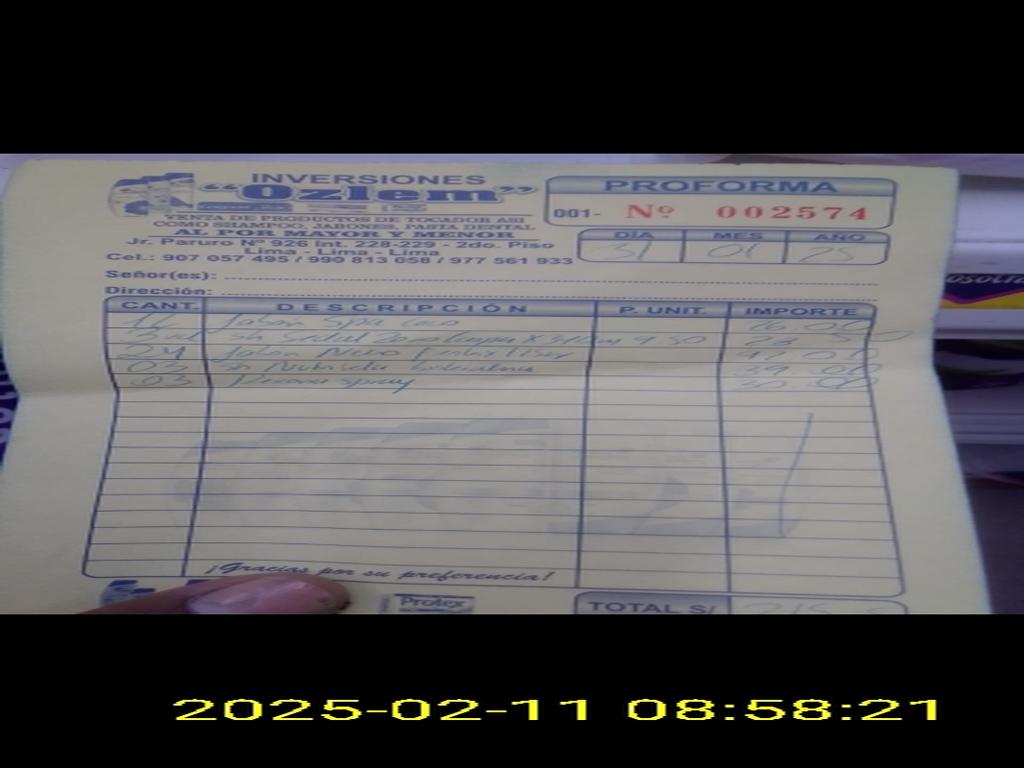 INVERSIONES
"Ozlem"
VENTA DE PRODUCTOS DE TOCADOR ASI
COMO SHAMPOO, JABONES, PASTA DENTAL
AL POR MAYOR Y MENOR
Jr. Paruro Nº 926 Int. 228-229 - 2do. Piso
Lima - Lima - Lima
Cel.: 907 057 495 / 990 813 058 / 977 561 933
PROFORMA
001- Nº 002574
DÍA MES AÑO
31 01 25
Señor(es):
Dirección:
CANT. DESCRIPCIÓN P. UNIT. IMPORTE
12 Jabon Spa Coco 26 00
Sh Sedal 9 50 28 50
24 Jabon 92 00
03 Sh 39 00
03 Rexona spray 30 00
¡Gracias por su preferencia!
Protex
TOTAL S/ 215
2025-02-11 08:58:21